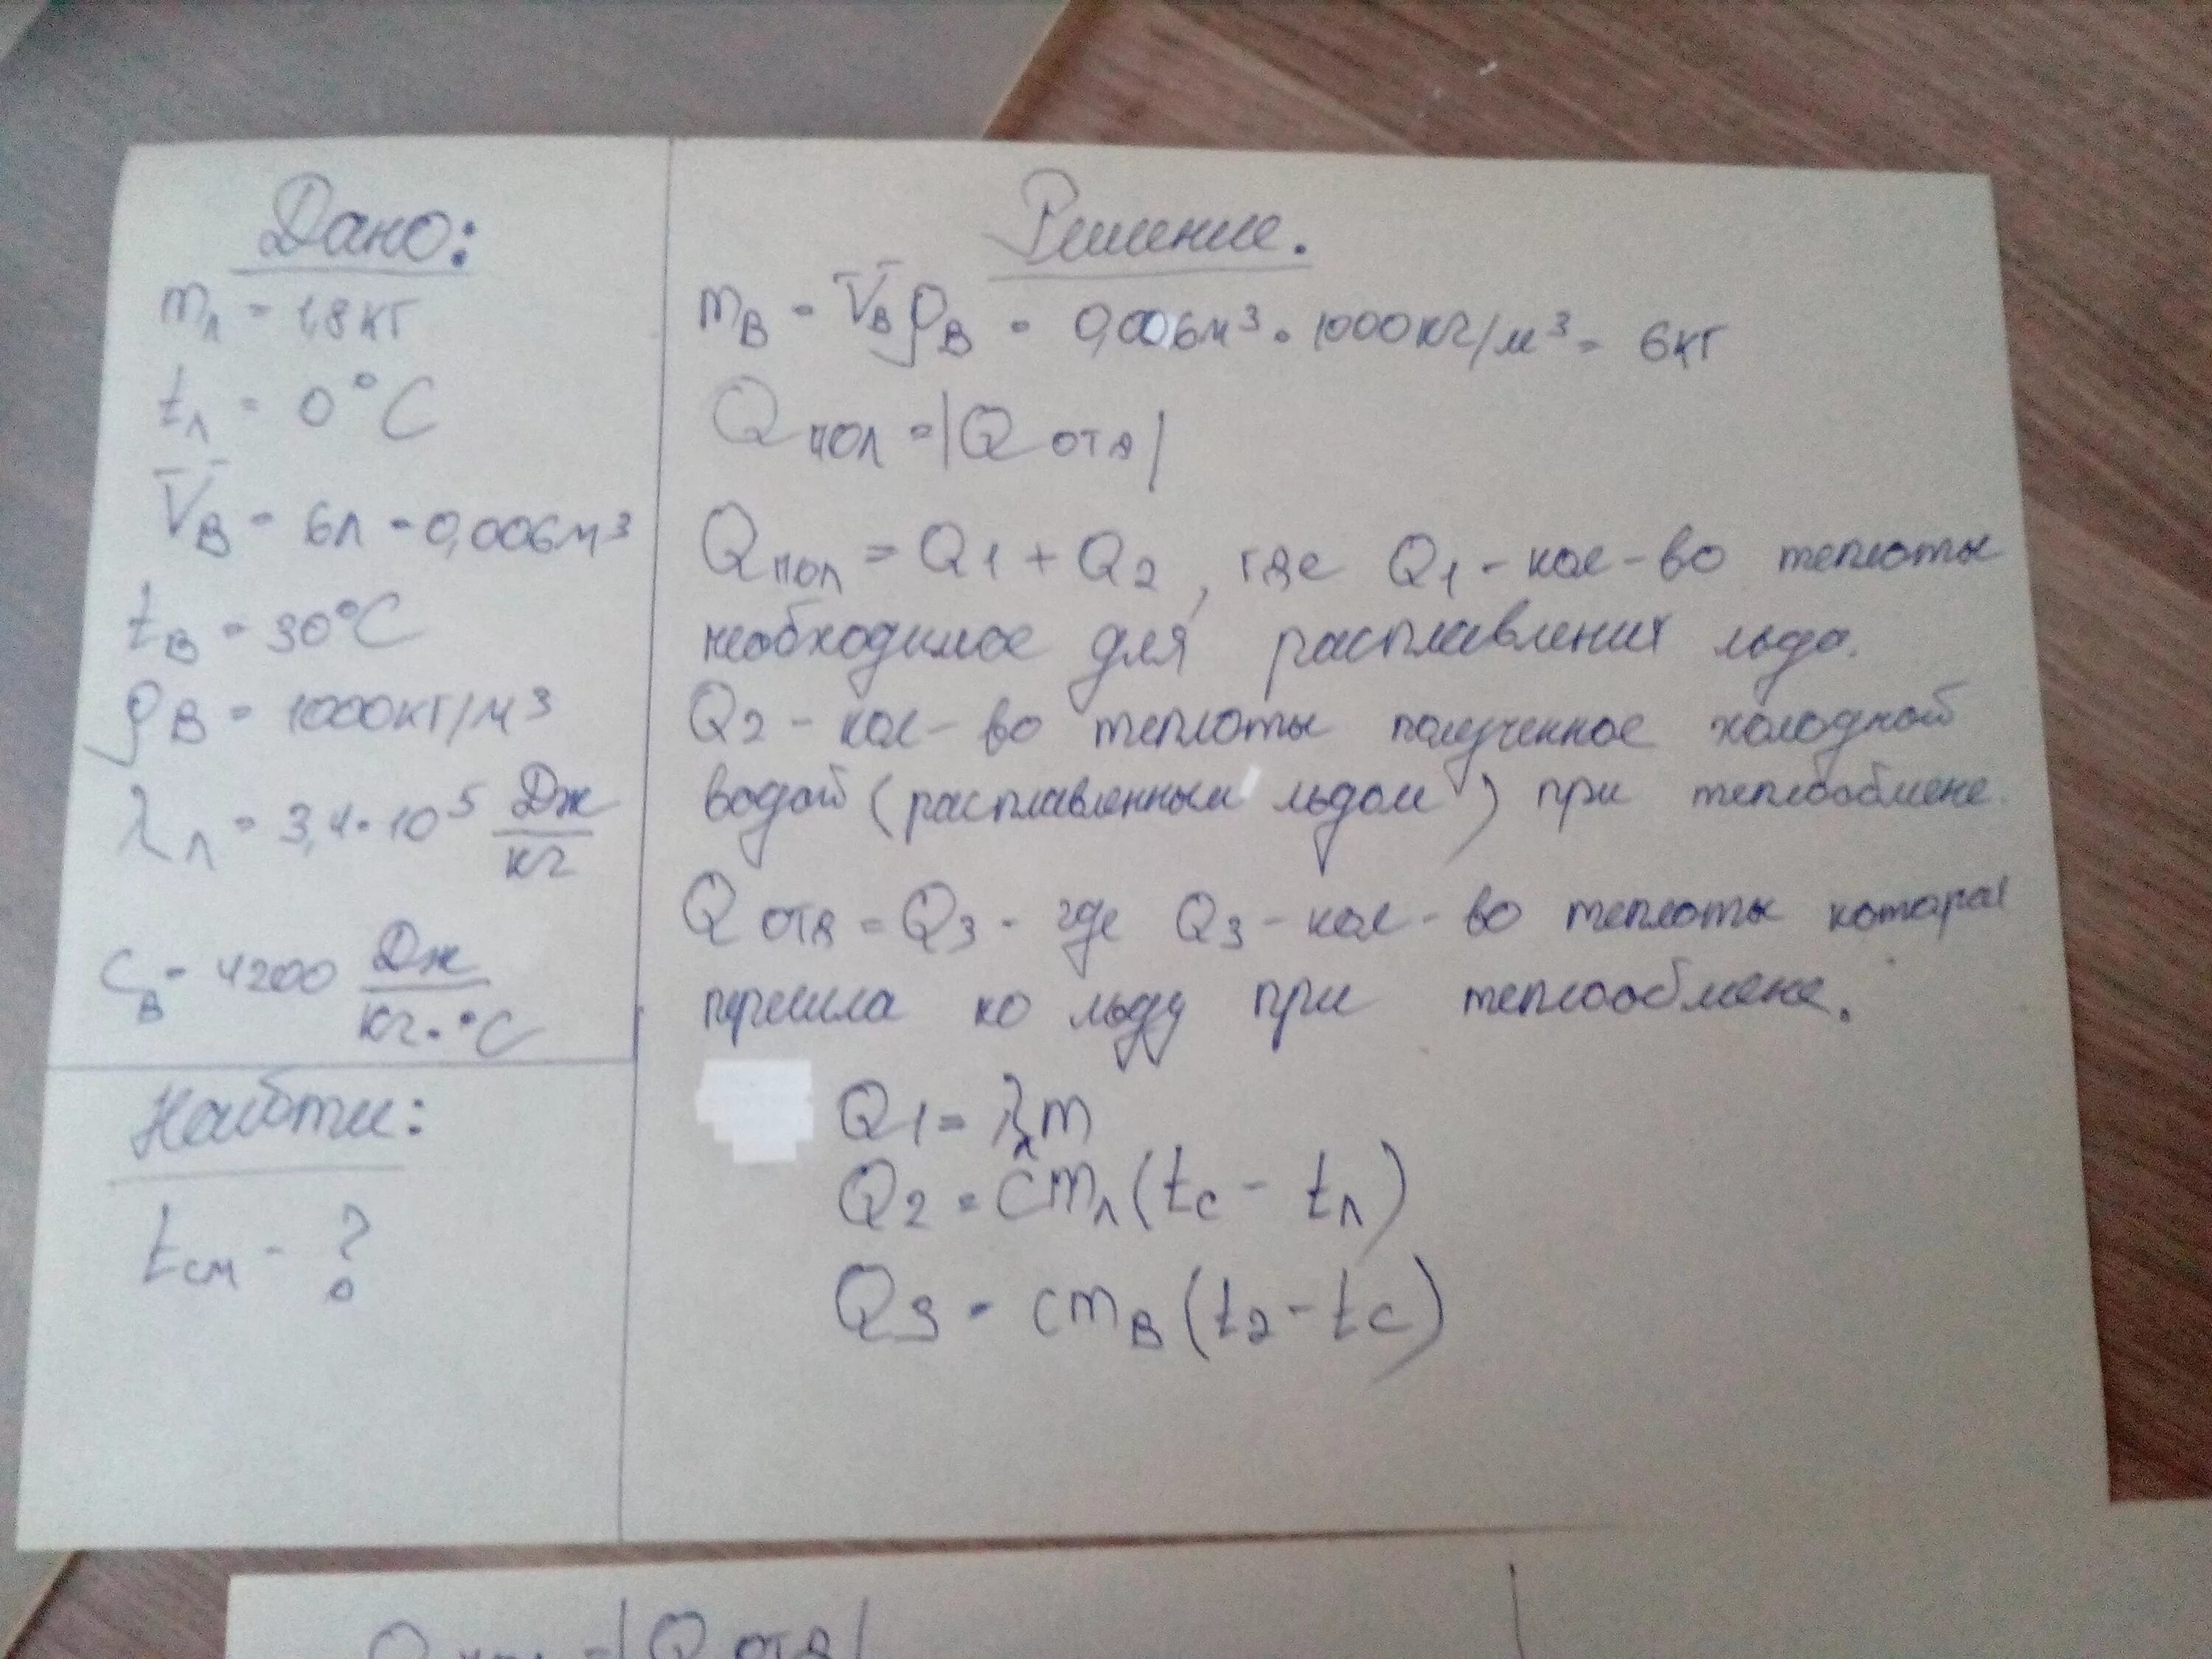 Дано:
mл = 1,8кг
tл = 0°C
Vв = 6л = 0,006м³
tв = 30°C
ρв = 1000кг/м³
λл = 3,4·10⁵ Дж/кг
cв = 4200 Дж/кг·°C
Найти:
tсм - ?
Решение.
mв = Vвρв = 0,006м³ · 1000кг/м³ = 6кг
Qпол = |Qотд|
Qпол = Q1 + Q2, где Q1 - кол-во теплоты
необходимое для расплавления льда.
Q2 - кол-во теплоты полученное холодной
водой (расплавленным льдом) при теплообмене.
Qотд = Q3 - где Q3 - кол-во теплоты которая
перешла ко льду при теплообмене.
Q1 = λлm
Q2 = cmл(tс - tл)
Q3 = cmв(t2 - tс)
Qпол = |Qотд|